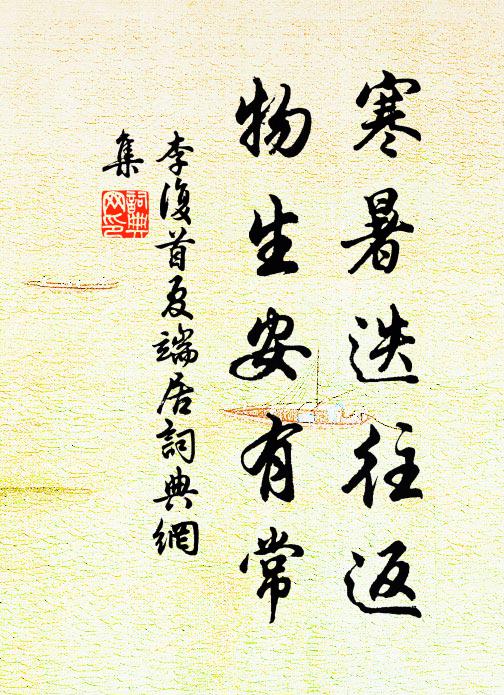 寒暑迭往返
物生安有常
李復首夏端居詞典網
集
詞典
网印